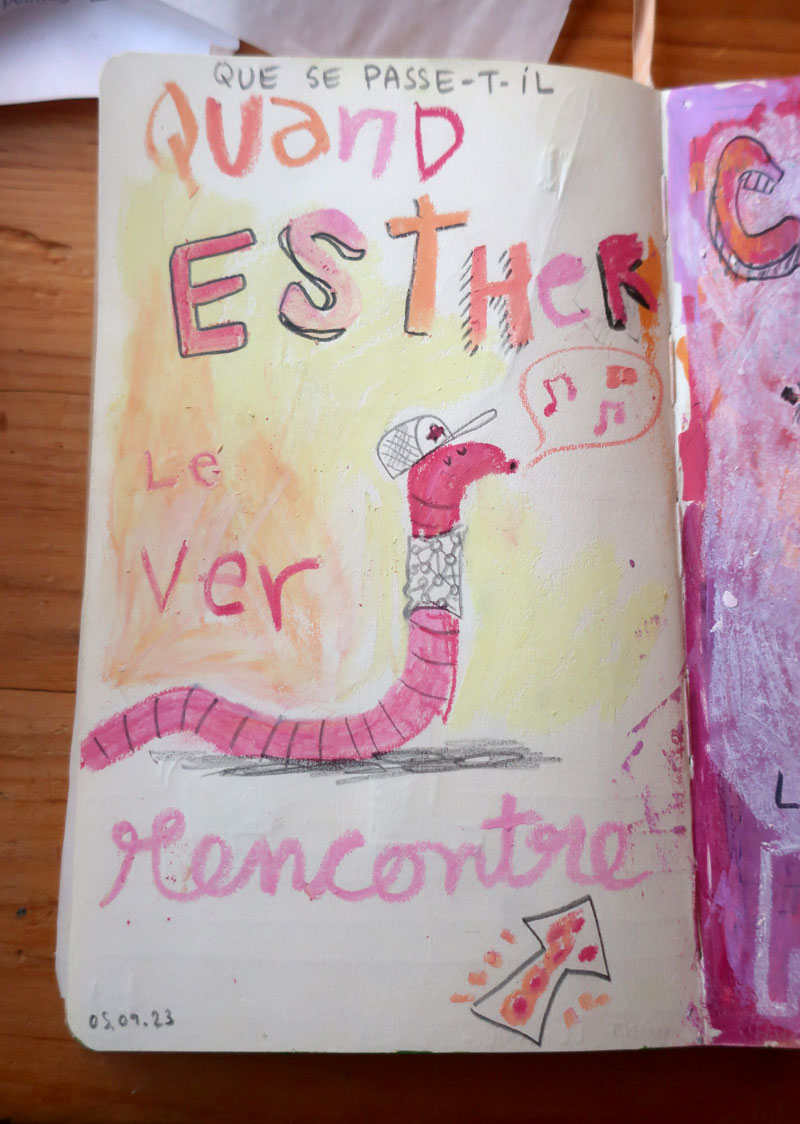 QUE SE PASSE-T-iL
QUanD
ESTHeR
Le
Ver
rencontre
05.09.23
C
L